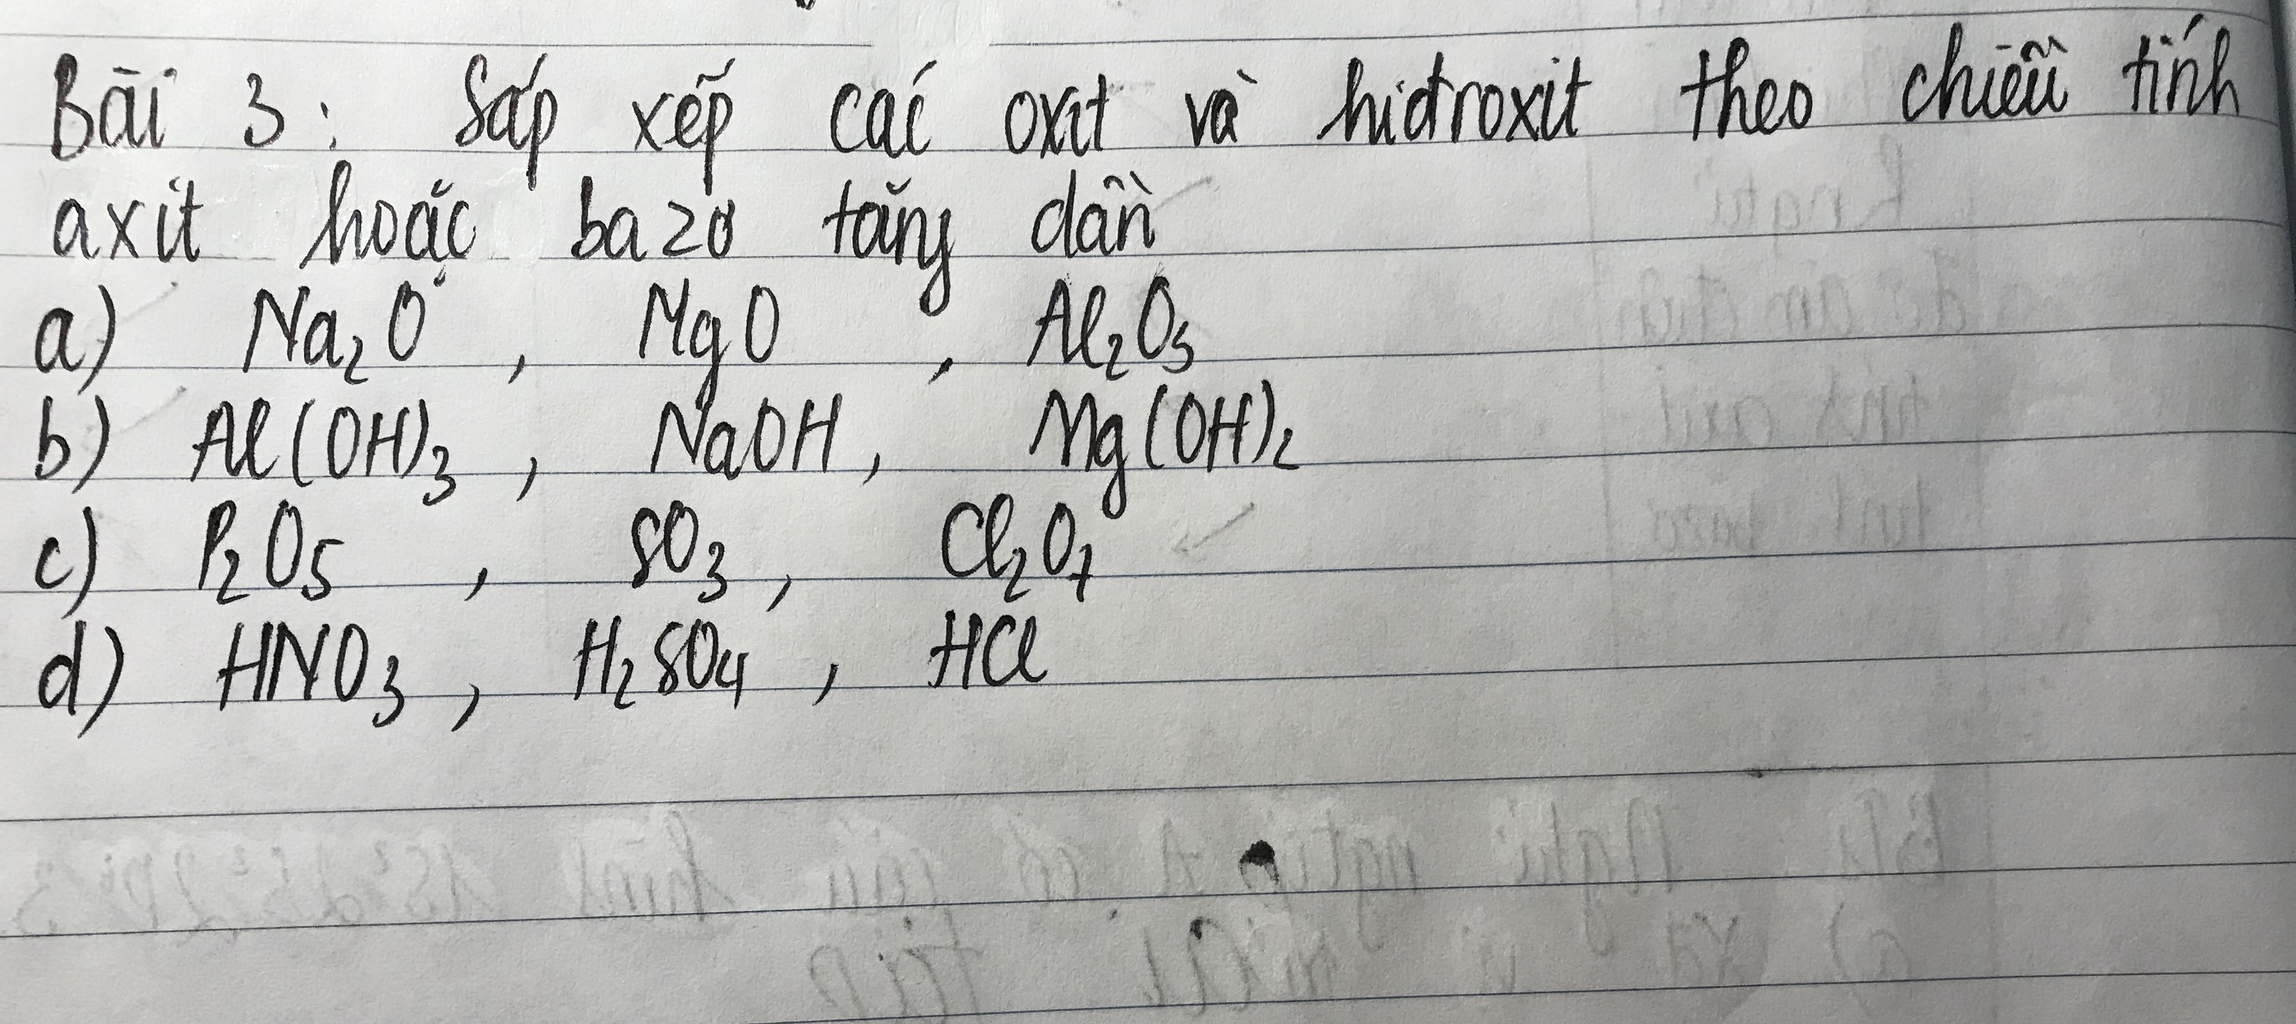 Bài 3: Sắp xếp các oxit và hiđroxit theo chiều tính
axit hoặc bazơ tăng dần
a) Na₂O, MgO, Al₂O₃
b) Al(OH)₃, NaOH, Mg(OH)₂
c) P₂O₅, SO₃, Cl₂O₇
d) HNO₃, H₂SO₄, HCl